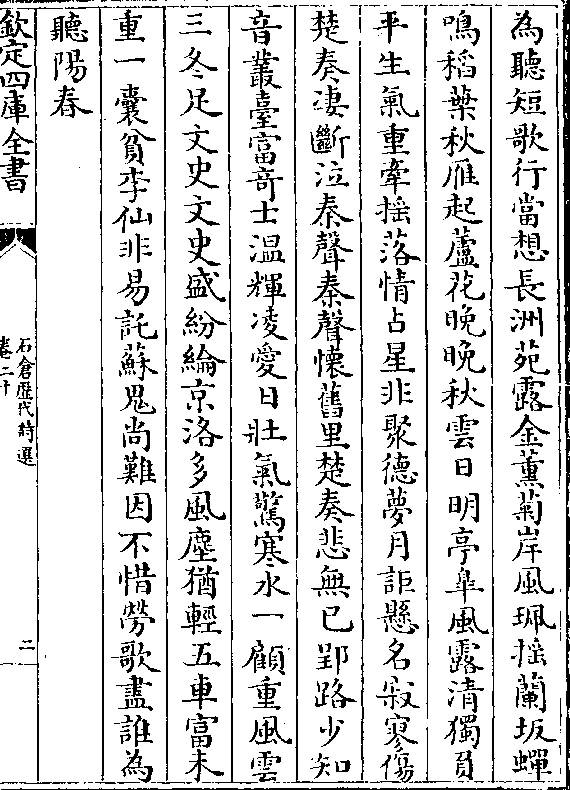 為聽短歌行當想長洲苑露金薰菊岸風珮搖蘭坂蟬
鳴稻葉秋雁起蘆花晚晚秋雲日明亭臯風露清獨負
平生氣重牽搖落情占星非聚德夢月詎懸名寂寥傷
楚奏凄斷泣秦聲秦聲懷舊里楚奏悲無已郢路少知
音叢臺富竒士温輝凌愛日壯氣驚寒水一顧重風雲
三冬足文史文史盛紛綸京洛多風塵猶輕五車富未
重一囊貧李仙非易託蘇鬼尚難因不惜勞歌盡誰為
聽陽春
欽定四庫全書
石倉歷代詩選
卷二十
二